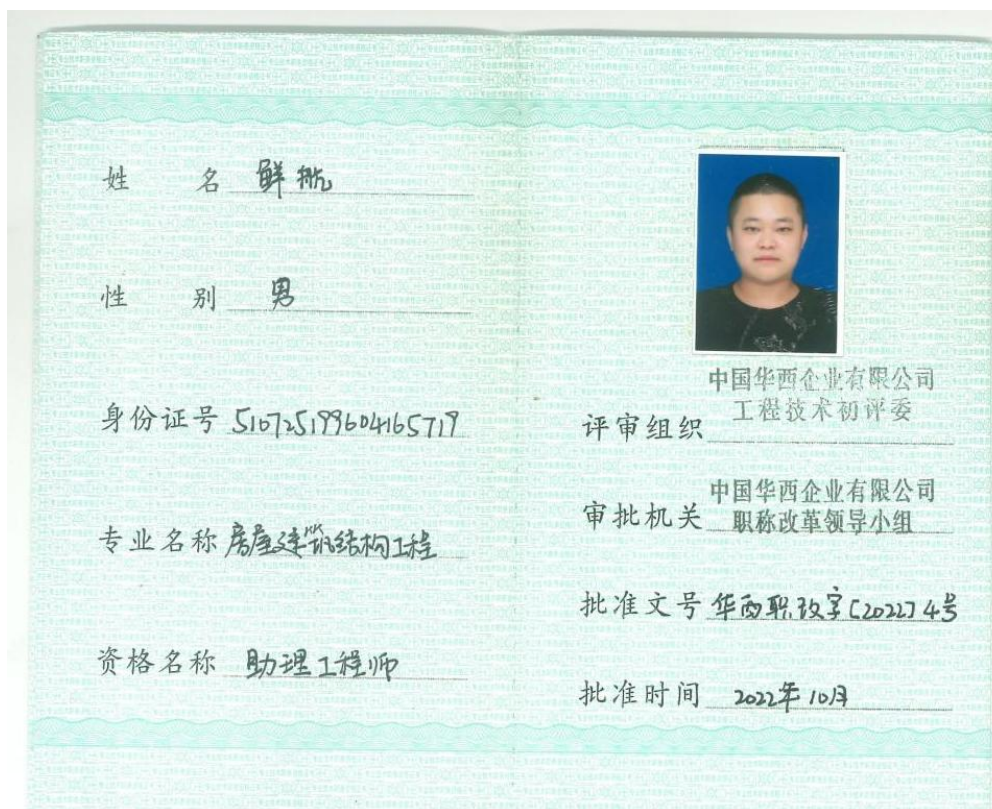 姓 名 鲜航
性 别 男
身份证号 510725199604165719
专业名称 房屋建筑结构工程
资格名称 助理工程师
中国华西企业有限公司
工程技术初评委
评审组织
中国华西企业有限公司
审批机关 职称改革领导小组
批准文号 华西职改字[2022]4号
批准时间 2022年10月